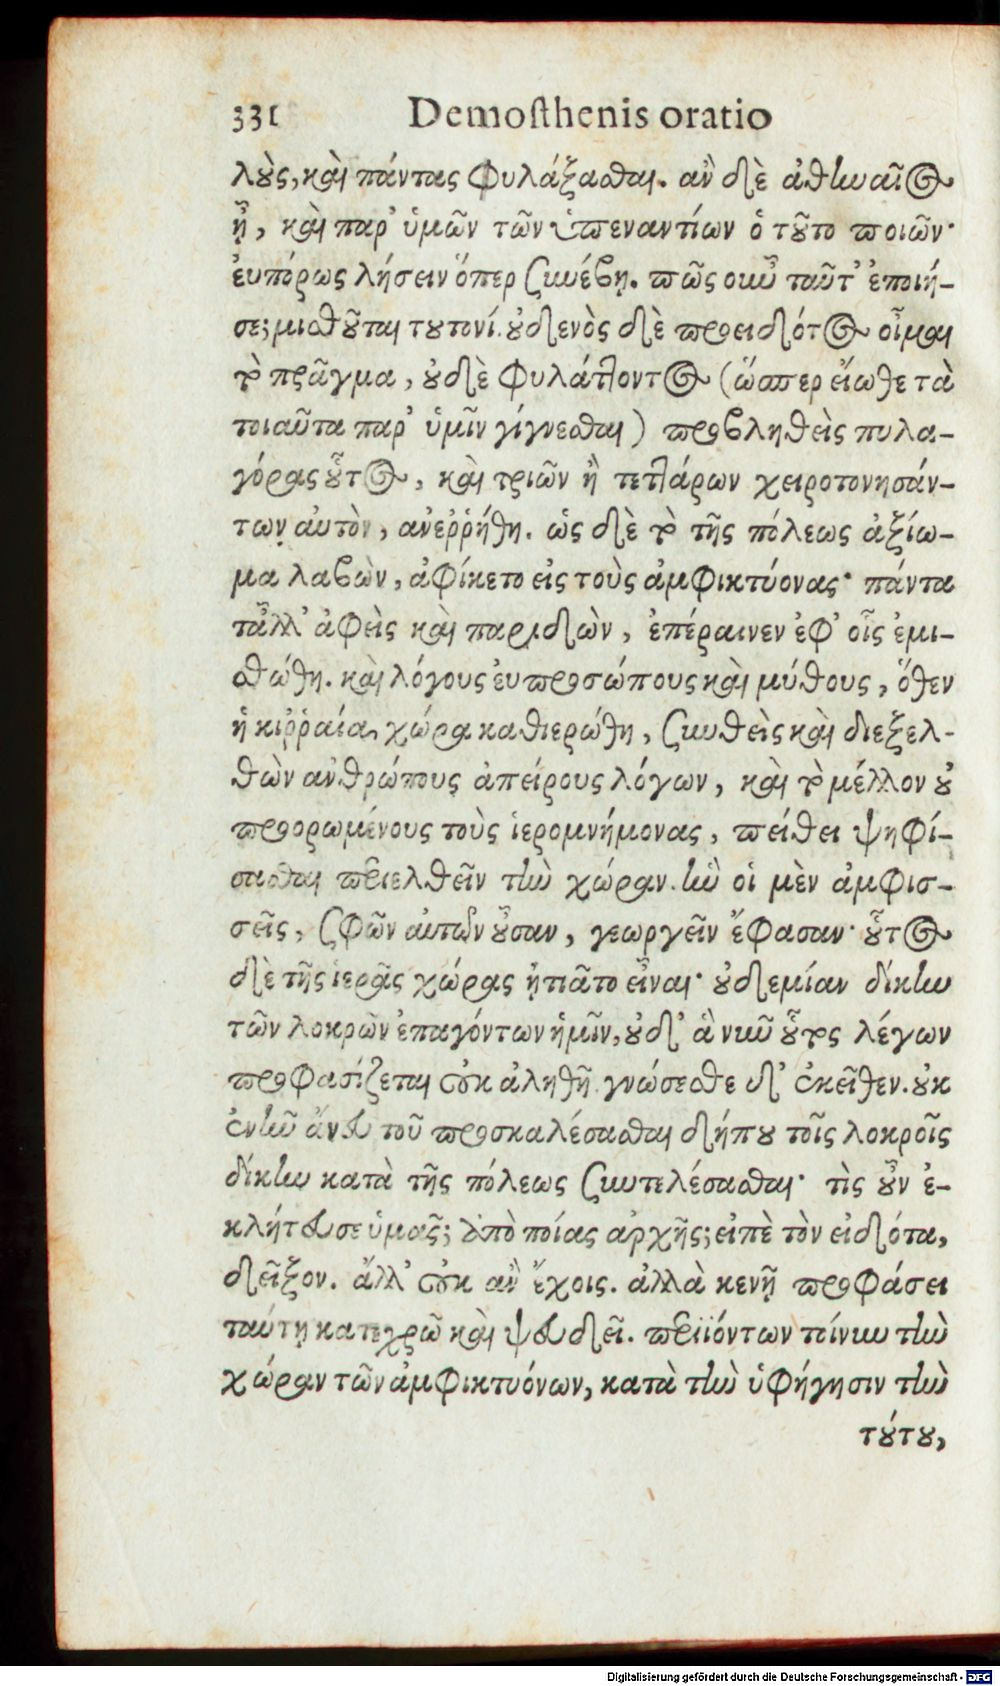 331 Demosthenis oratio
λοὺς, καὶ πάντας φυλάξασθαι. ἂν δὲ ἀθηναῖος
ᾖ, καὶ παρ' ὑμῶν τῶν ὑπεναντίων ὁ τοῦτο ποιῶν·
εὐπόρως λήσειν ὅπερ συνέβη. πῶς οὖν ταῦτ' ἐποίη-
σε; μισθοῦται τουτονί. οὐδενὸς δὲ προειδότος οἶμαι
τὸ πρᾶγμα, οὐδὲ φυλάττοντος (ὥσπερ εἴωθε τὰ
τοιαῦτα παρ' ὑμῖν γίγνεσθαι) προβληθεὶς πυλα-
γόρας οὗτος, καὶ τριῶν ἢ τεττάρων χειροτονησάν-
των αὐτὸν, ἀνερρήθη. ὡς δὲ τὸ τῆς πόλεως ἀξίω-
μα λαβὼν, ἀφίκετο εἰς τοὺς ἀμφικτύονας· πάντα
τἆλλ' ἀφεὶς καὶ παριδὼν, ἐπέραινεν ἐφ' οἷς ἐμι-
σθώθη. καὶ λόγους εὐπροσώπους καὶ μύθους, ὅθεν
ἡ κιῤῥαία χώρα καθιερώθη, συνθεὶς καὶ διεξελ-
θὼν ἀνθρώπους ἀπείρους λόγων, καὶ τὸ μέλλον οὐ
προορωμένους τοὺς ἱερομνήμονας, πείθει ψηφί-
σασθαι περιελθεῖν τὴν χώραν. ἣν οἱ μὲν ἀμφισ-
σεῖς, σφῶν αὐτῶν οὖσαν, γεωργεῖν ἔφασαν· οὗτος
δὲ τῆς ἱερᾶς χώρας ᾐτιᾶτο εἶναι· οὐδεμίαν δίκην
τῶν λοκρῶν ἐπαγόντων ἡμῖν, οὐδ' ἃ νῦν οὗτος λέγων
προφασίζεται οὐκ ἀληθῆ. γνώσεσθε δ' ἐκεῖθεν. οὐκ
ἐνῆν ἄνευ τοῦ προσκαλέσασθαι δήπου τοῖς λοκροῖς
δίκην κατὰ τῆς πόλεως συντελέσασθαι· τὶς οὖν ἐ-
κλήτευσε ὑμᾶς; ἀπὸ ποίας ἀρχῆς; εἰπὲ τὸν εἰδότα,
δεῖξον. ἀλλ' οὐκ ἂν ἔχοις. ἀλλὰ κενῇ προφάσει
ταύτῃ κατεχρῶ καὶ ψευδεῖ. περιϊόντων τοίνυν τὴν
χώραν τῶν ἀμφικτυόνων, κατὰ τὴν ὑφήγησιν τὴν
τούτου,
Digitalisierung gefördert durch die Deutsche Forschungsgemeinschaft - DFG